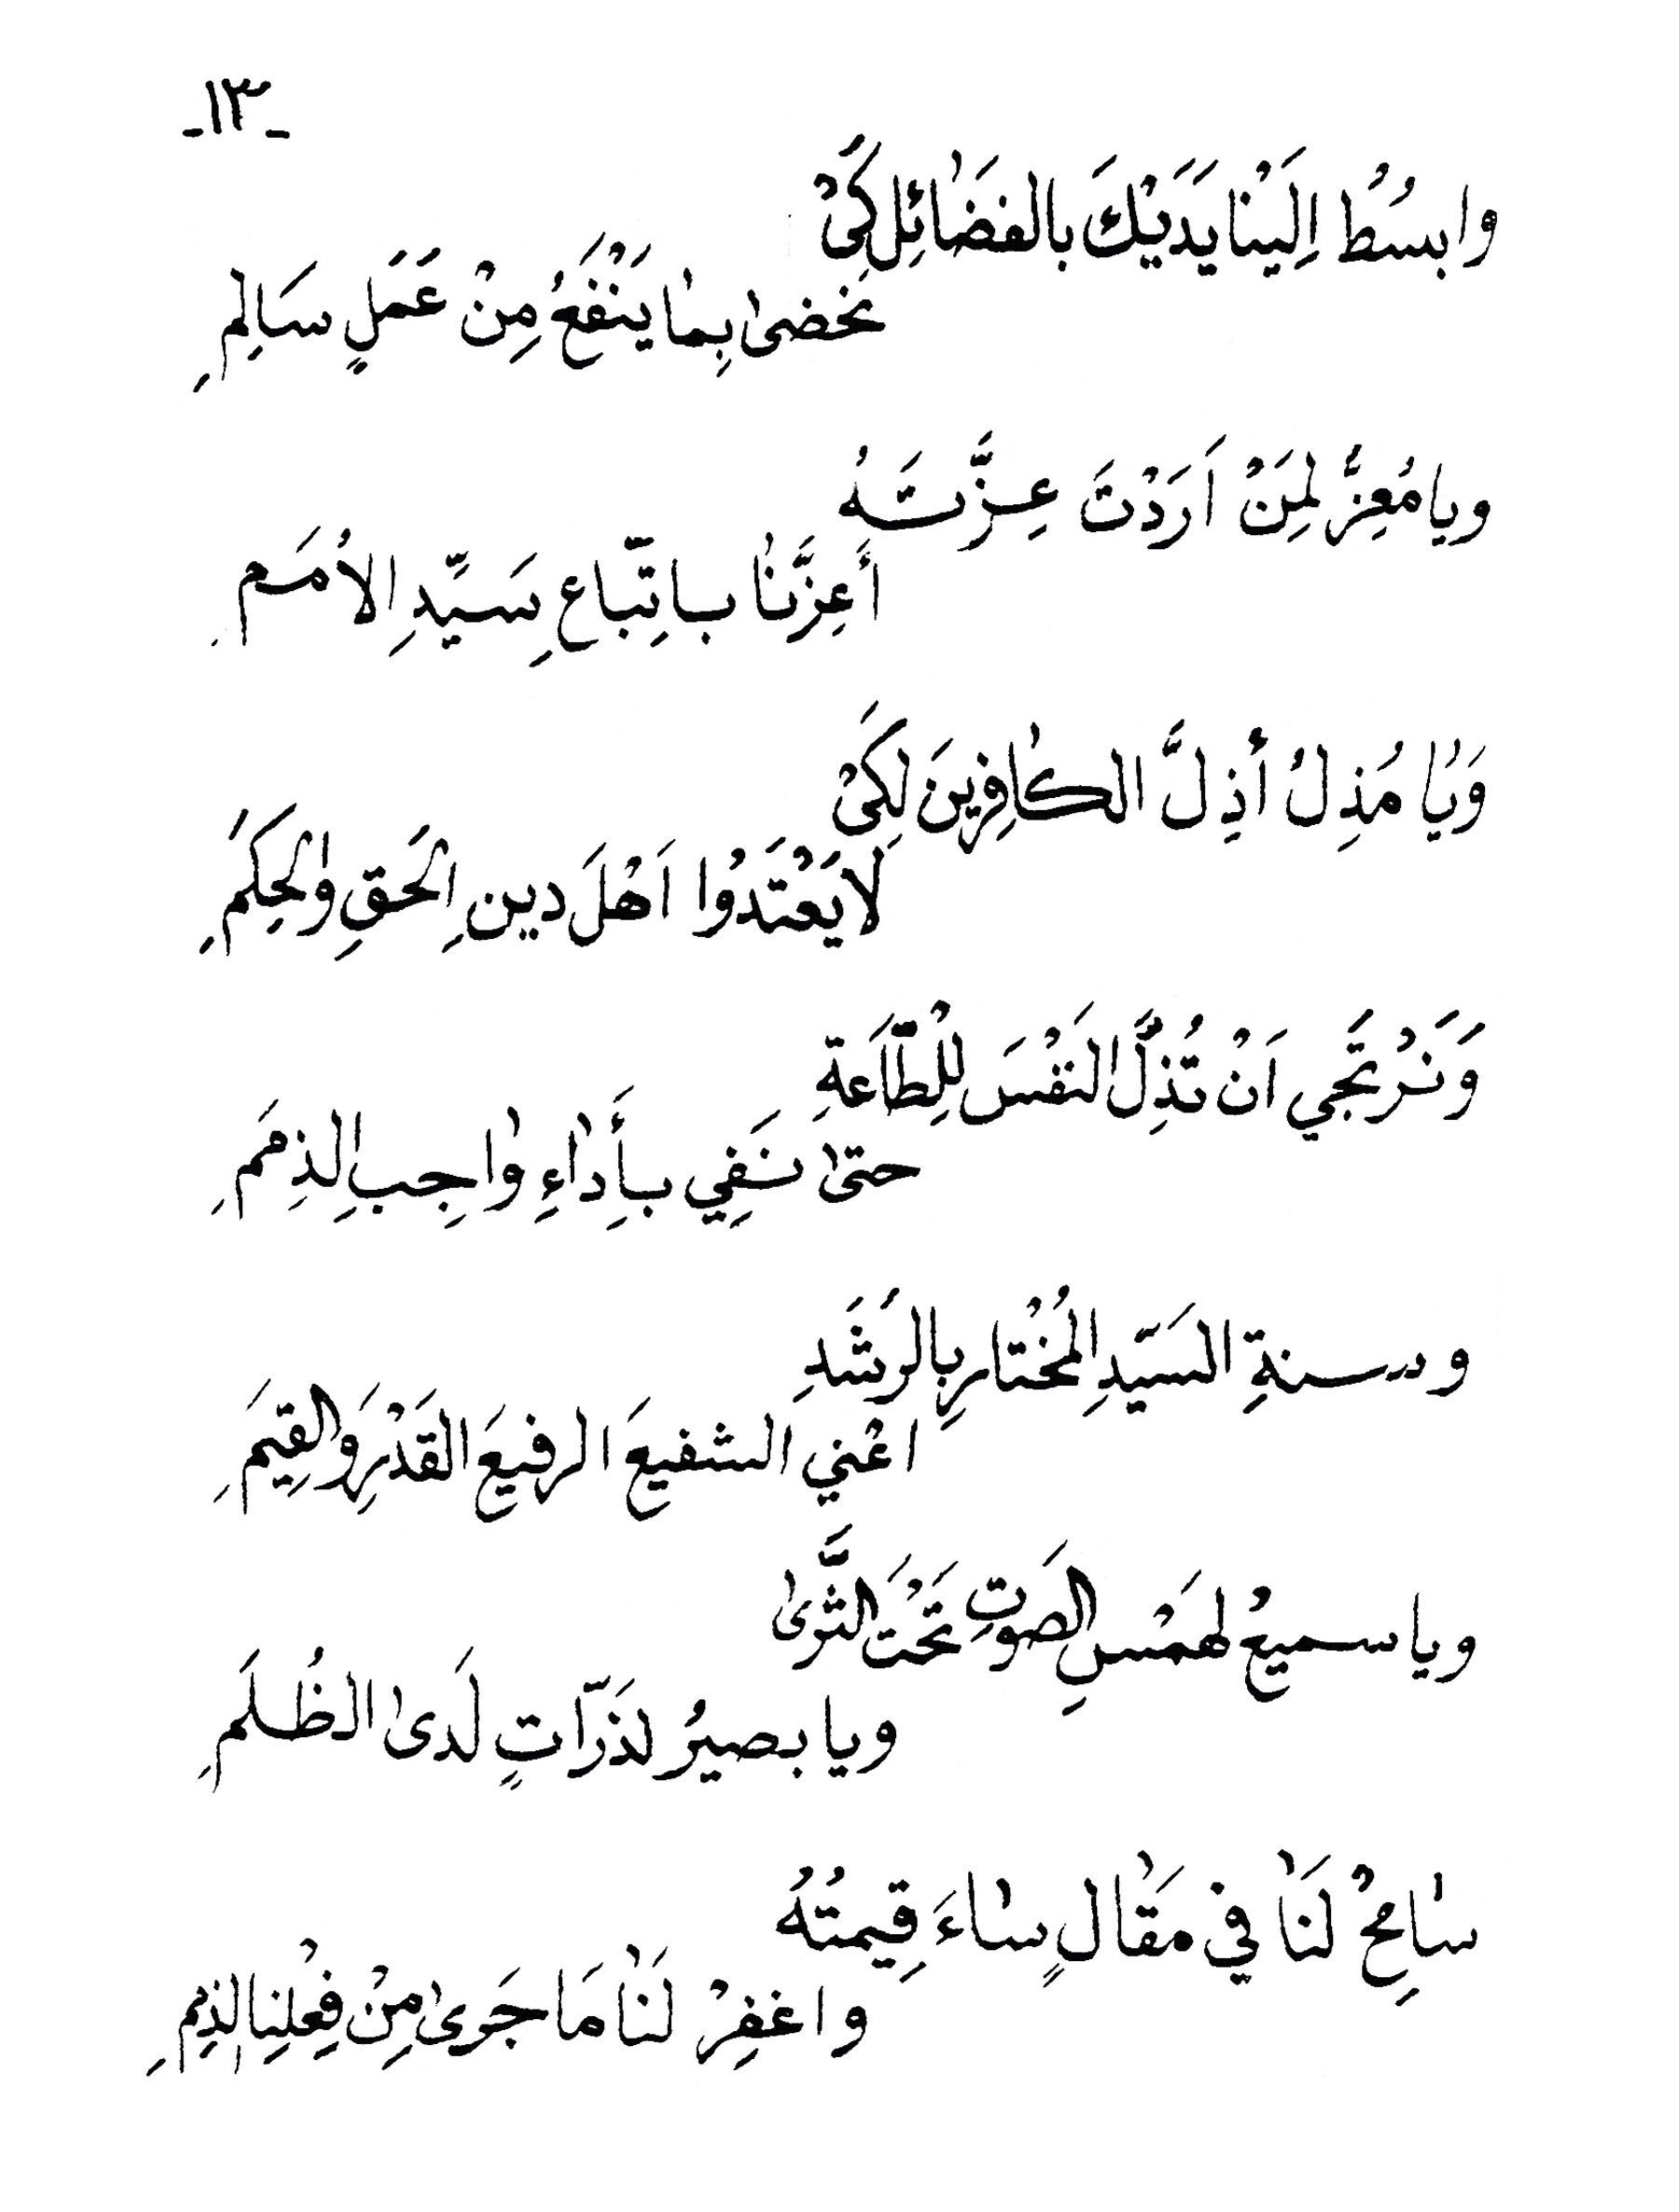 -١٣-
وابسُطْ اِلَيْنا يَدَيْكَ بالفضَائِل كَيْ
نحضىٰ بِما يَنْفَعُ مِنْ عَمَلٍ سَالِمِ
ويا مُعِزُّ لِمَنْ اَرَدْتَ عِزَّتَهُ
أَعِزَّنا باتِّباعِ سَيِّدِ الاُمَمِ
وَيا مُذِلُ أذِلَّ الكافِرِينَ لِكَيْ
لَا يَعْتَدُوا اَهْلَ دينِ الحَقِ والحِكَمِ
وَنَرْتَجي اَنْ تُذِلَّ النَفْسَ لِلْطّاَعَةِ
حتىٰ نَفِي بأَداءِ واجِبِ الذِمَمِ
و سنةِ السَيّدِ المُخْتارِ بالرُشَدِ
اعْني الشفيعَ الرفيعَ القَدْرِ وَالقِيَمِ
ويا سميعْ لهَمْسِ الصَوتِ تَحْتَ الثَّرىٰ
ويا بصيرُ لذَرّاتٍ لَدىٰ الظُلَمِ
سامِحْ لَنَا في مَقالٍ ساءَ قِيمتُهُ
واغفِرْ لَنَا مَا جَرىٰ مِنْ فِعْلِنا الذِمِ